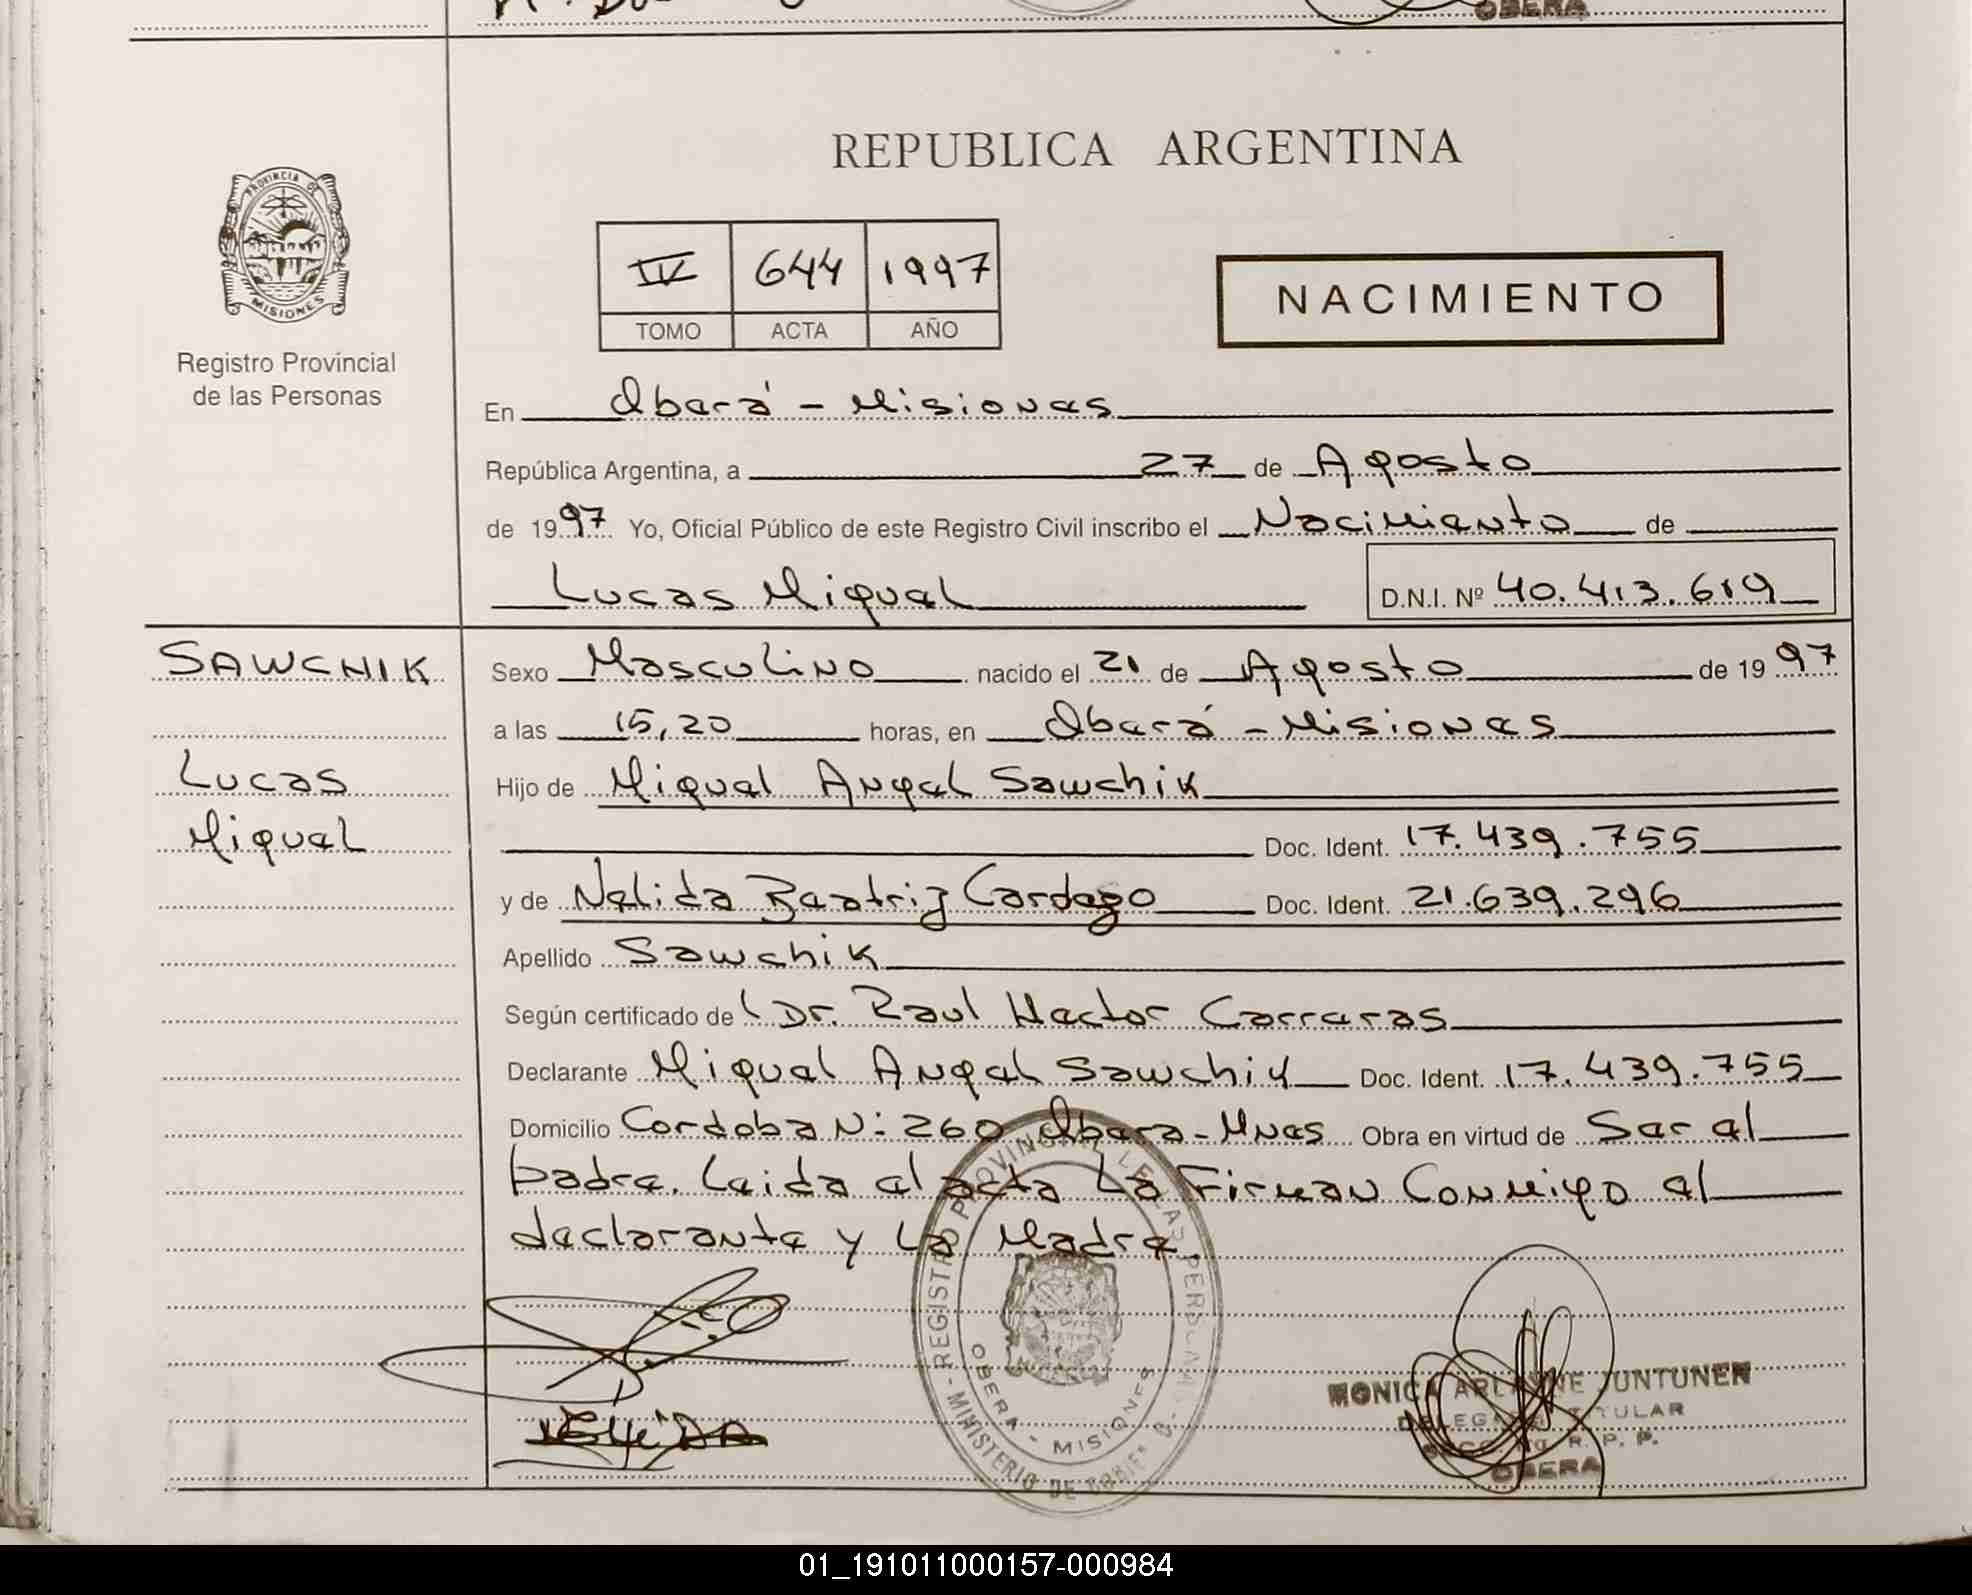 OBERA
REPUBLICA ARGENTINA
PROVINCIA DE
MISIONES
IV 644 1997
TOMO ACTA AÑO
NACIMIENTO
Registro Provincial
de las Personas
En Oberá - Misiones
República Argentina, a 27 de Agosto
de 1997 Yo, Oficial Público de este Registro Civil inscribo el Nacimiento de
Lucas Miguel D.N.I. Nº 40.413.619
SAWCHIK Sexo Masculino nacido el 21 de Agosto de 1997
a las 15,20 horas, en Oberá - Misiones
Lucas Hijo de Miguel Angel Sawchik
Miguel Doc. Ident. 17.439.755
y de Nelida Beatriz Cardozo Doc. Ident. 21.639.296
Apellido Sawchik
Según certificado de Dr. Raul Hector Carreras
Declarante Miguel Angel Sawchik Doc. Ident. 17.439.755
Domicilio Cordoba N: 260 Obera - Mnes Obra en virtud de Ser el
padre. Leida el acta La Firman Conmigo el
declarante y La Madre.
REGISTRO PROVINCIAL DE LAS PERSONAS
OBERA - MISIONES
MINISTERIO DE GOBIERNO
MONICA ARLAYNE JUNTUNEN
DELEGADA TITULAR
R. P. P.
OBERA
01_191011000157-000984